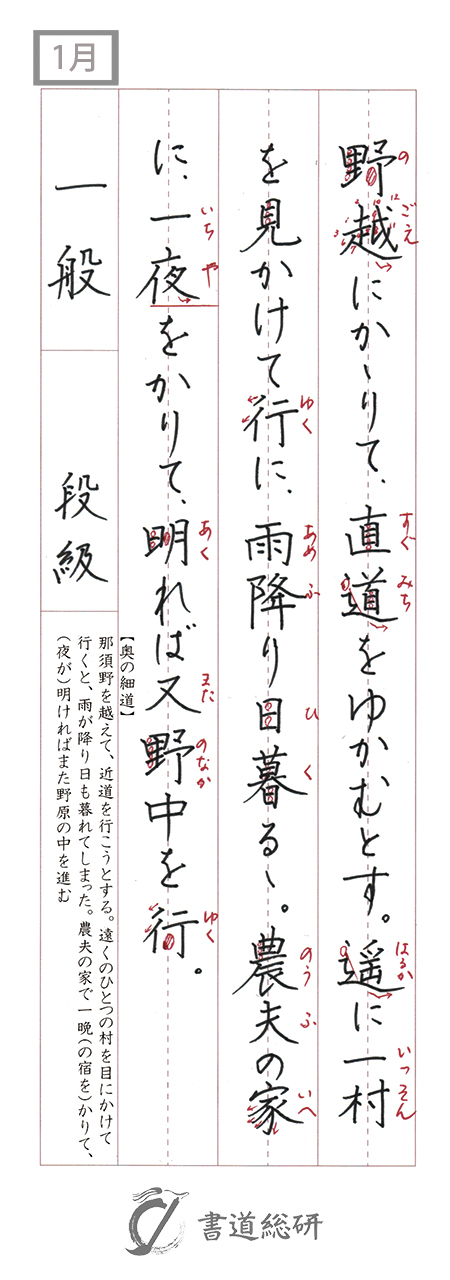 1月
野越にかゝりて、直道をゆかむとす。遥に一村
の ごえ すぐ みち はるか いっそん
を見かけて行に、雨降り日暮るゝ。農夫の家
ゆく あめ ふ ひ く のう ふ いへ
に、一夜をかりて、明れば又野中を行。
いち や あく また のなか ゆく
【奥の細道】
那須野を越えて、近道を行こうとする。遠くのひとつの村を目にかけて
行くと、雨が降り日も暮れてしまった。農夫の家で一晩(の宿を)かりて、
(夜が)明ければまた野原の中を進む
一般
段級
書道総研